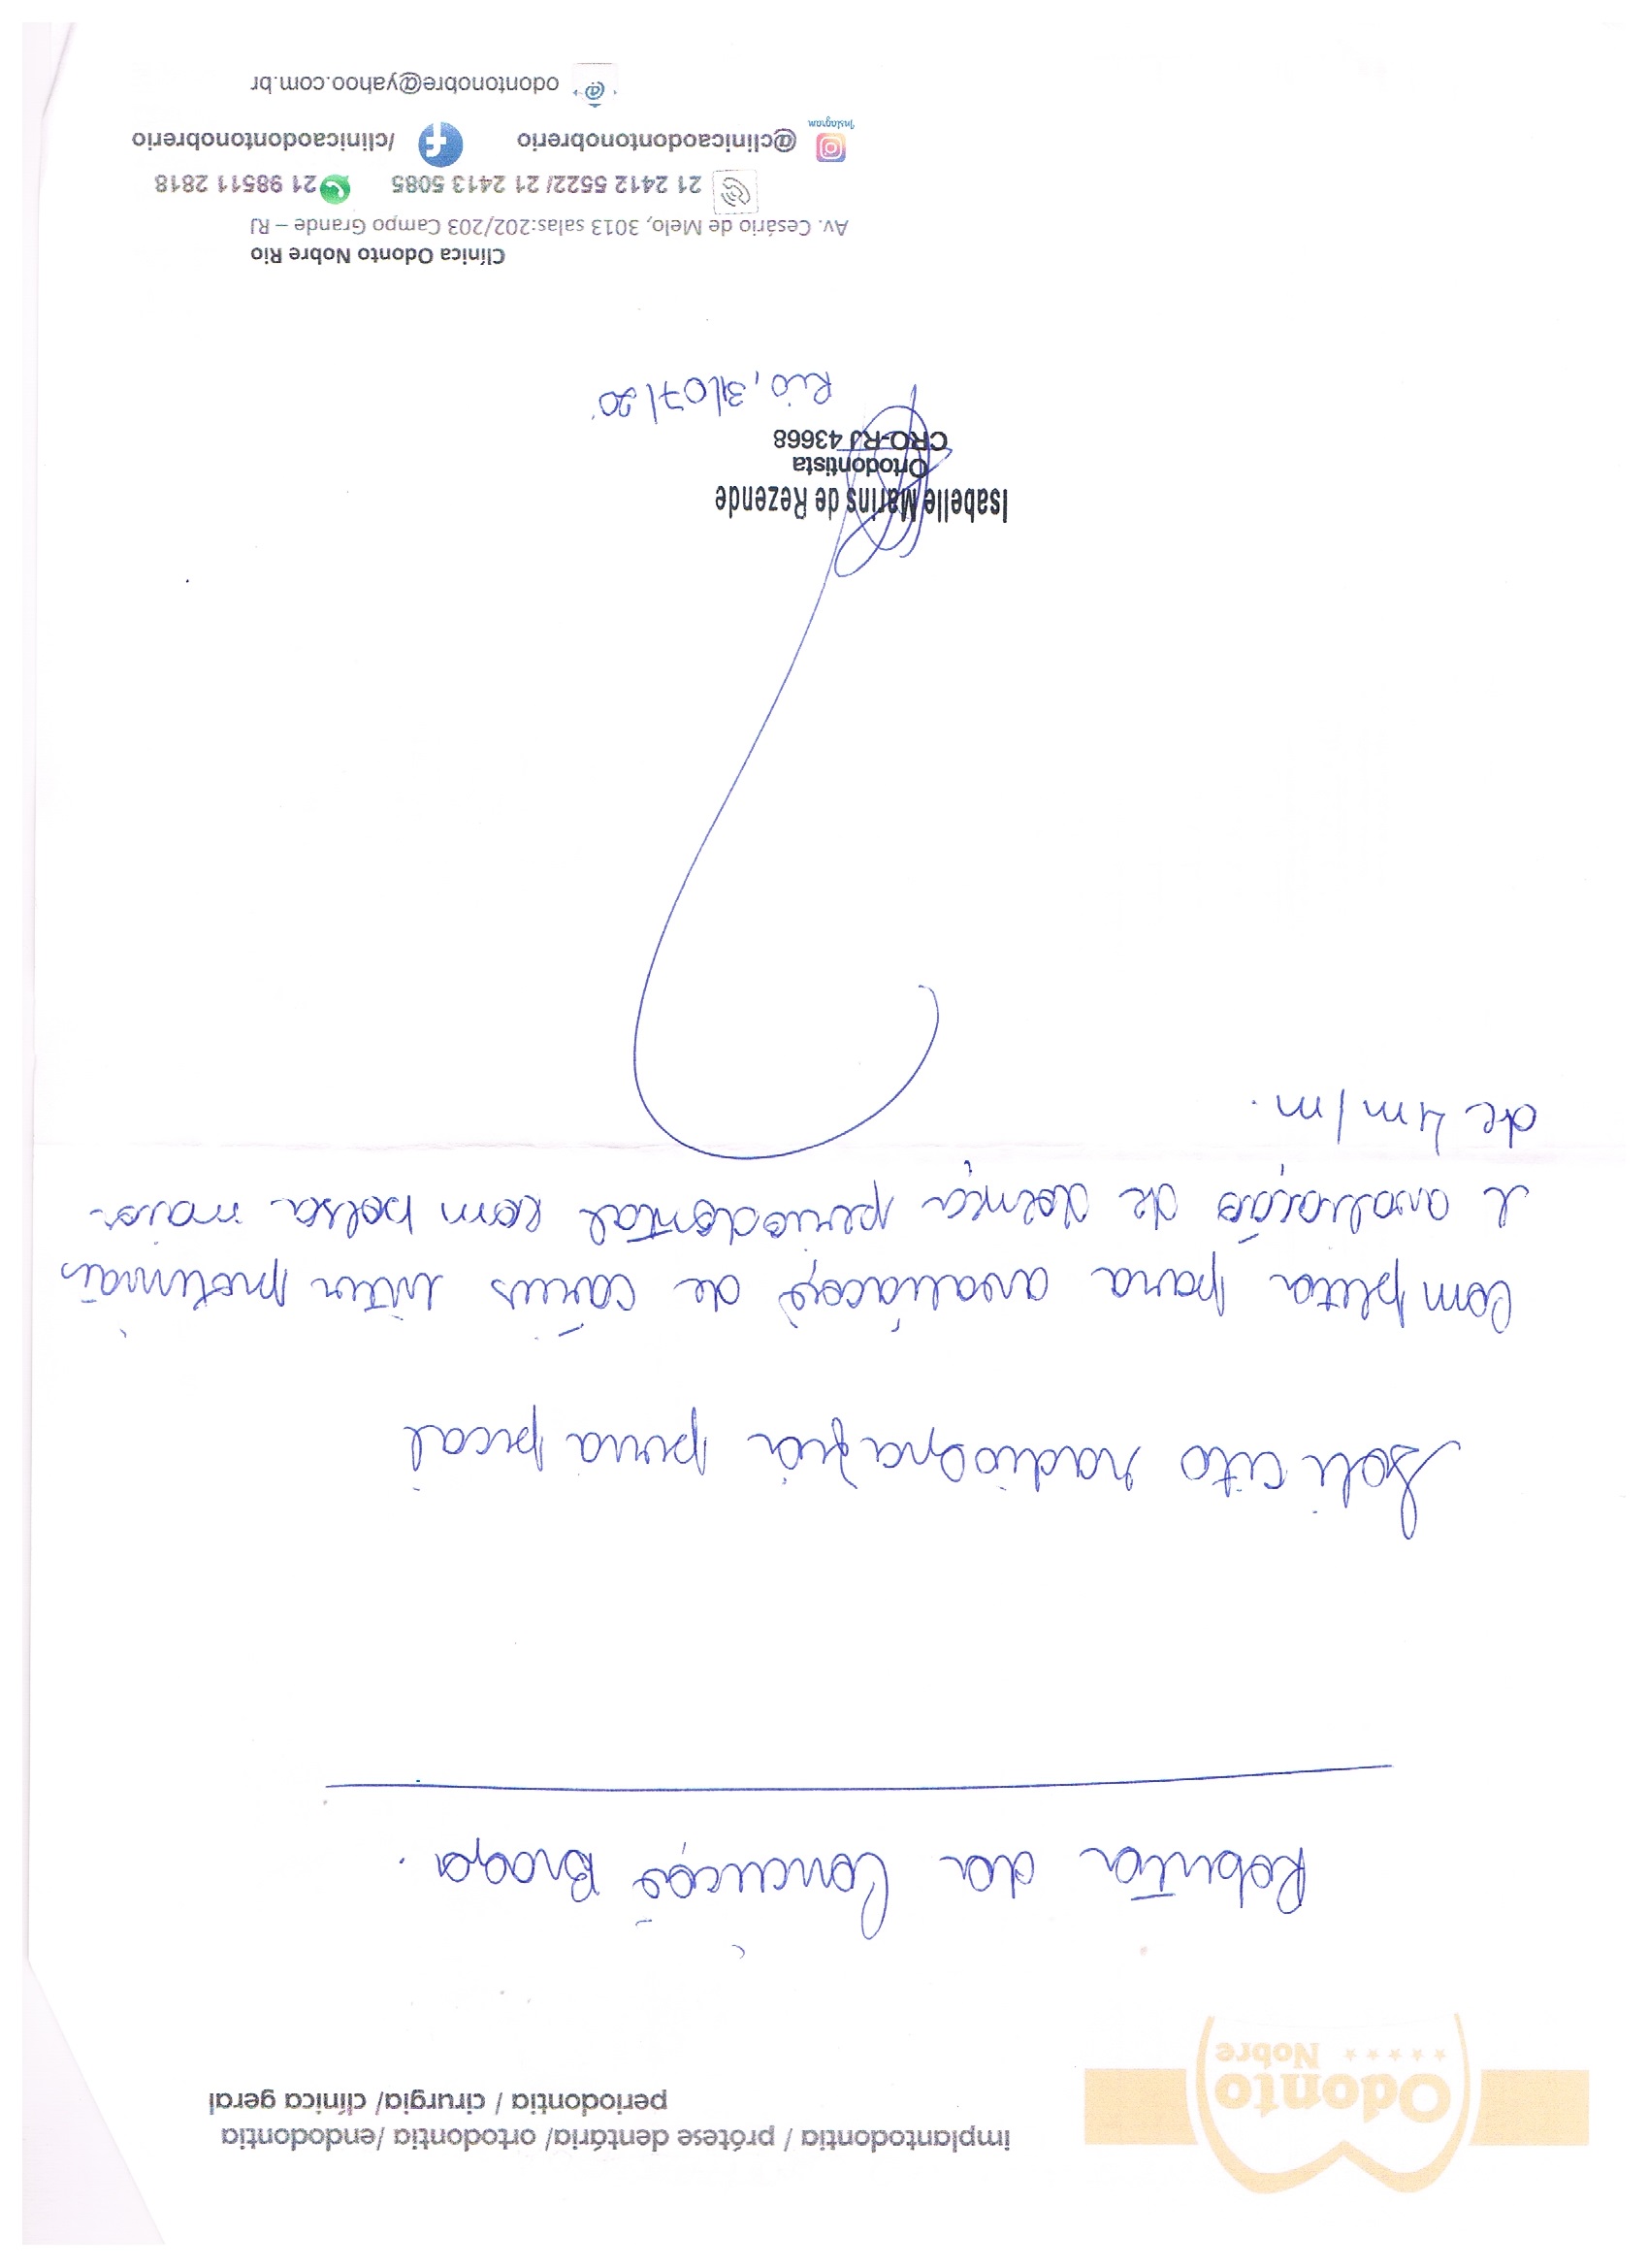 Odonto
Nobre
implantodontia / prótese dentária/ ortodontia /endodontia
periodontia / cirurgia/ clínica geral
da Conceição Braga.
Solicito radiografia peria pical
Completa para avaliação de cáries inter proximais
e avaliação de doença periodontal com bolsa maior
de 4m/m.
Isabelle Marins de Rezende
Ortodontista
CRO-RJ 43668
Rio, 31/07/20
Clínica Odonto Nobre Rio
Av. Cesário de Melo, 3013 salas:202/203 Campo Grande – RJ
21 2412 5522/ 21 2413 5085 21 98511 2818
Instagram @clinicaodontonobrerio /clinicaodontonobrerio
odontonobre@yahoo.com.br